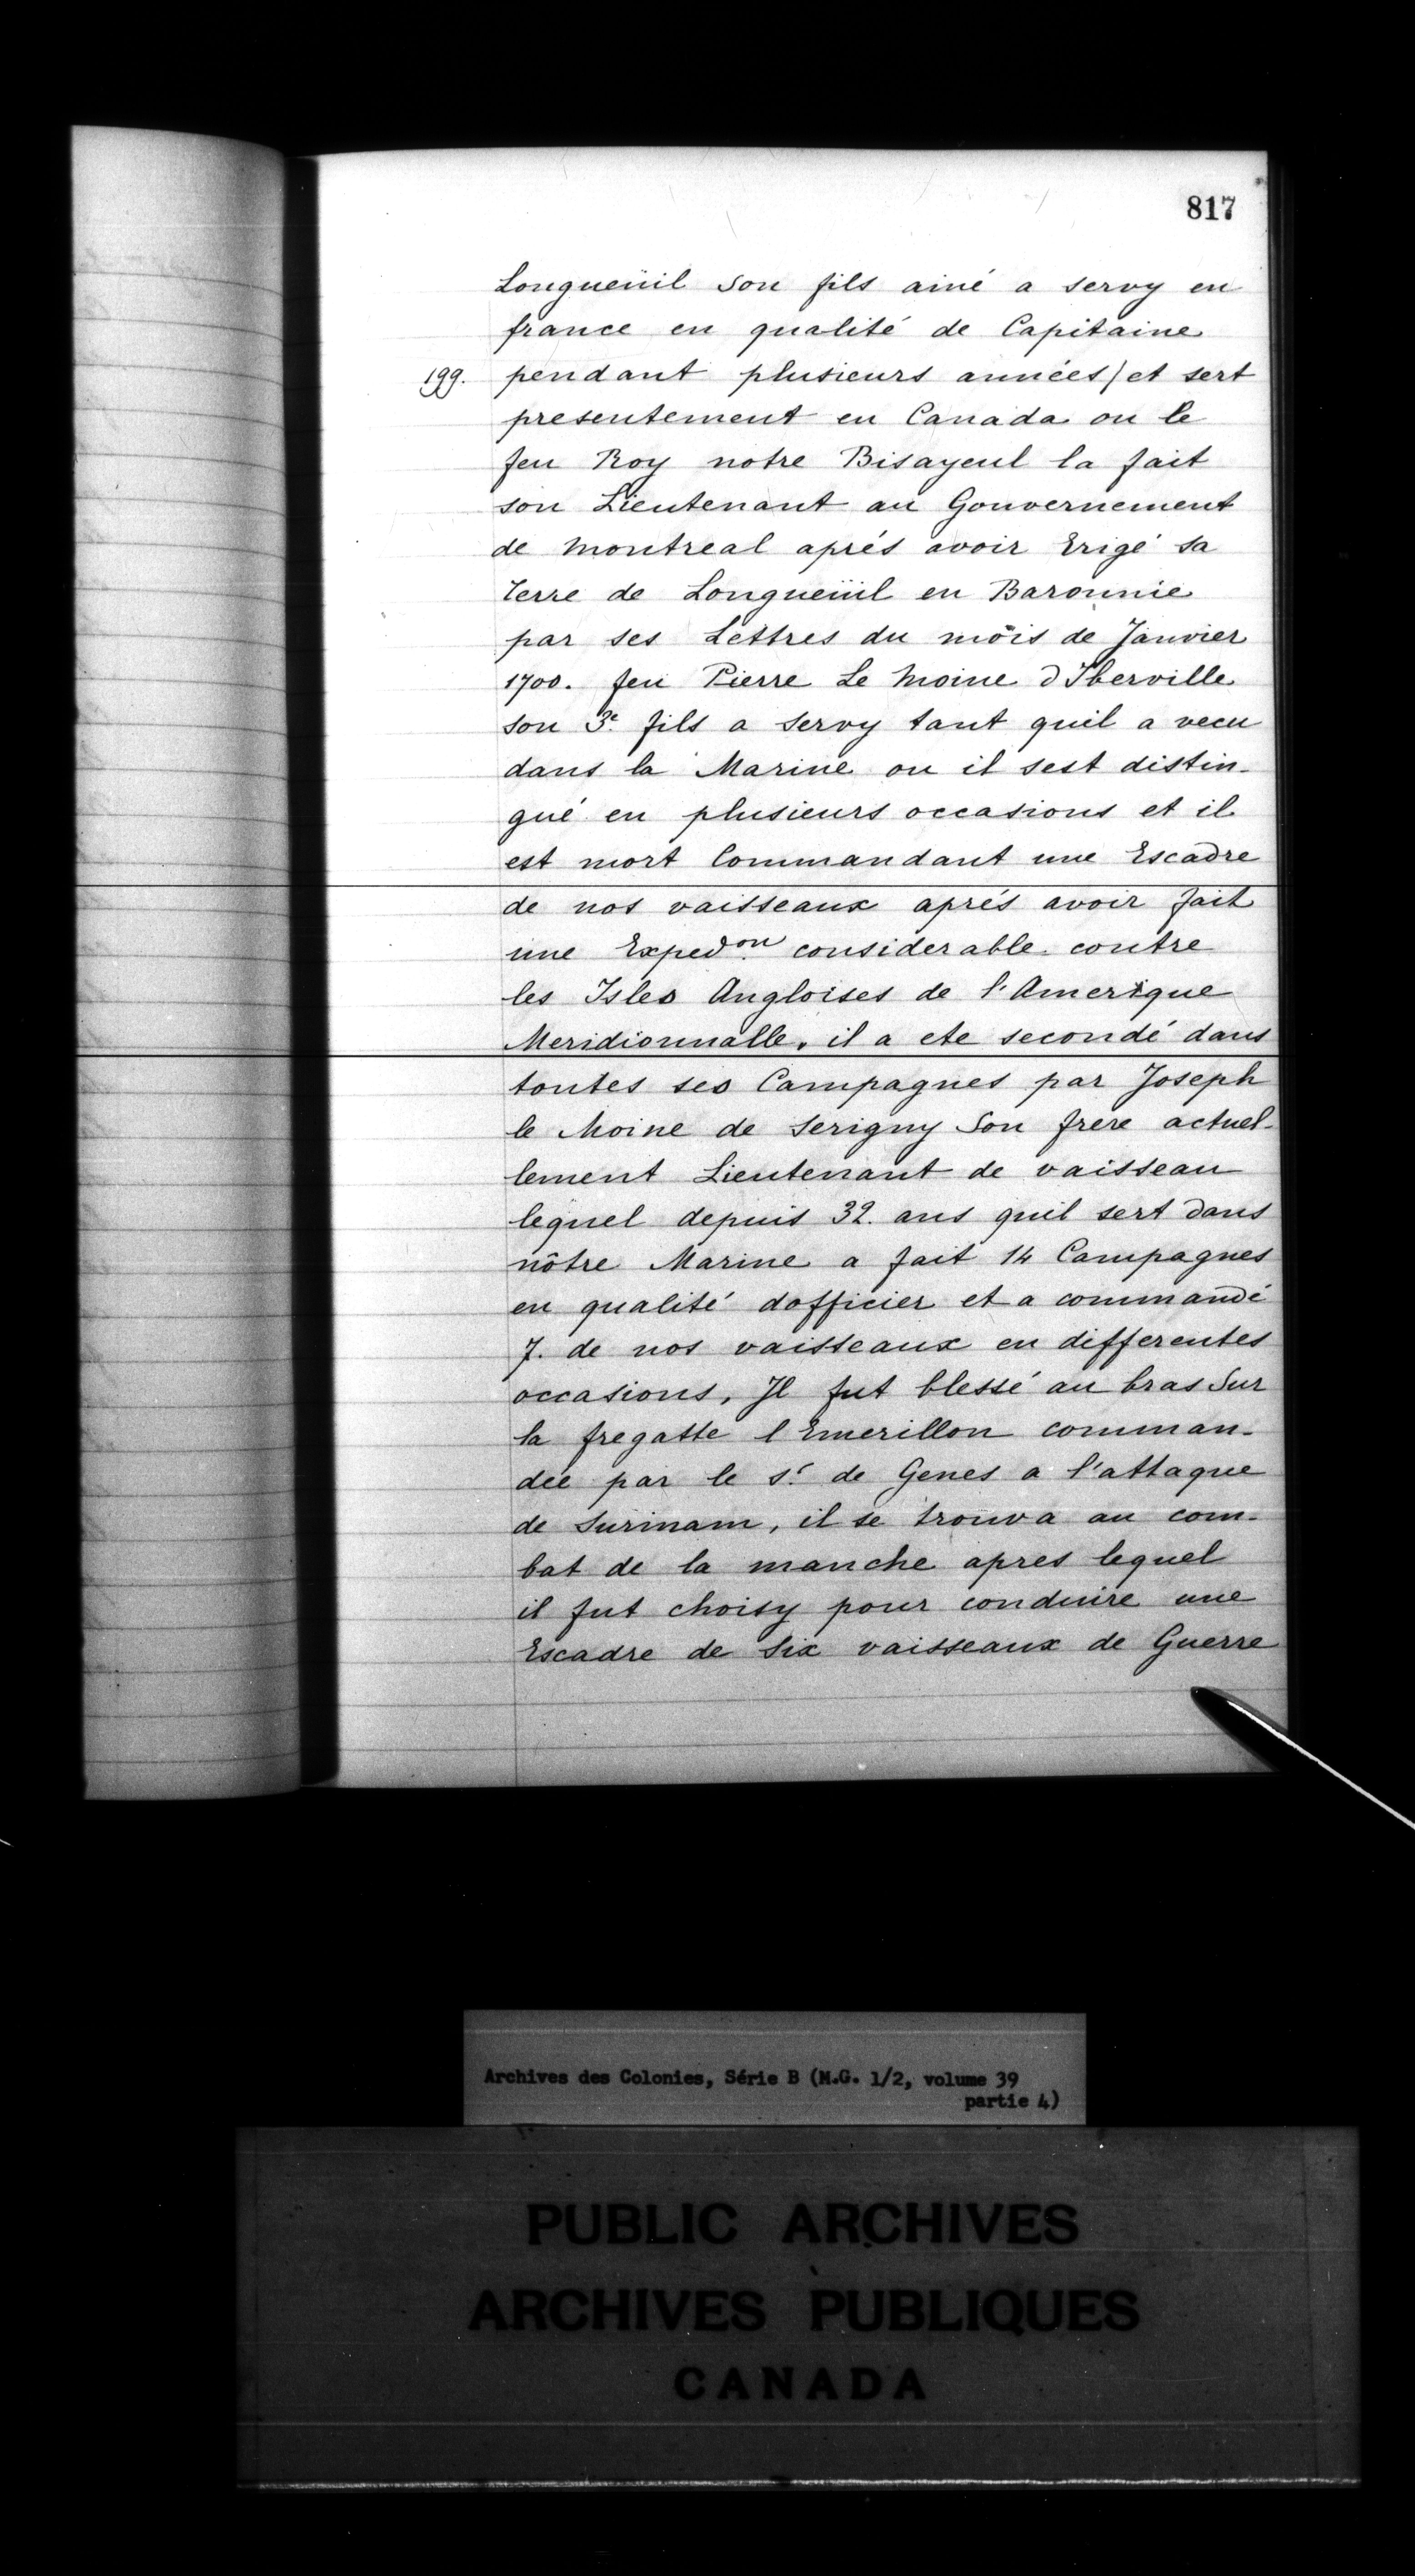 817
Longueüil son fils ainé a servy en
france en qualité de Capitaine
199. pendant plusieurs années/et sert
presentement en Canada ou le
feu Roy notre Bisayeul la fait
son Lieutenant au Gouvernement
de Montreal aprés avoir Erigé sa
terre de Longueüil en Baronnie
par ses Lettres du mois de Janvier
1700. feu Pierre Le Moine d Iberville
son 3e. fils a servy tant quil a vecu
dans la Marine ou il sest distin-
gué en plusieurs occasions et il
est mort Commandant une Escadre
de nos vaisseaux aprés avoir fait
une Expedon. considerable contre
les Isles Angloises de l'Amerique
Meridionnalle, il a ete secondé dans
toutes ses Campagnes par Joseph
le Moine de Serigny Son frere actuel-
lement Lieutenant de vaisseau
lequel depuis 32. ans quil sert dans
nôtre Marine a fait 14 Campagnes
en qualité dofficier et a commandé
7. de nos vaisseaux en differentes
occasions, Il fut blessé au bras sur
la fregatte l Emerillon comman-
dée par le Sr. de Genes a l'attaque
de Surinam, il se trouva au com-
bat de la manche apres lequel
il fut choisy pour conduire une
Escadre de six vaisseaux de Guerre
Archives des Colonies, Série B (M.G. 1/2, volume 39
partie 4)
PUBLIC ARCHIVES
ARCHIVES PUBLIQUES
CANADA